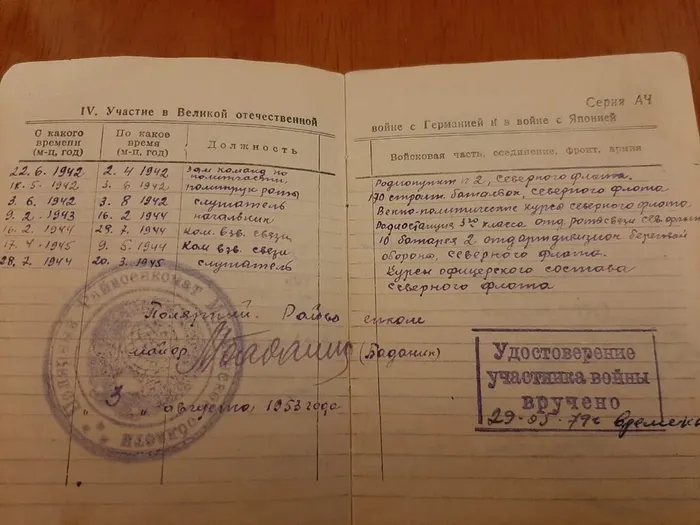 Серия АЧ
IV. Участие в Великой отечественной войне с Германией и в войне с Японией
С какого времени (м-ц, год)
По какое время (м-ц, год)
Должность
Войсковая часть, соединение, фронт, армия
22. 6. 1942 2. 4 1942 зам команд по политчасти Радиопункт № 2, северного флота.
18. 5. 1942 3. 6 1942 политрук роты 170 строит. батальон, северного флота
3. 6 1942 3. 8 1942 слушатель Военно-политические курсы северного флота
9. 2. 1943 16. 2 1944 начальник Радиостанция 3го класса отд. рота связи сев.
16. 2 1944 29. 7 1944 Ком. взв. связи 10 батарея 2 отд артдивизион береговой
17. 4 1945 9. 5 1944 Ком взв. связи обороны, северного флота.
28. 7. 1944 20. 3. 1945 слушатель Курсы офицерского состава
северного флота
Полярный Райвоенком
майор (Баданин)
"3" августа 1953 года
Удостоверение
участника войны
вручено
29-05-79г